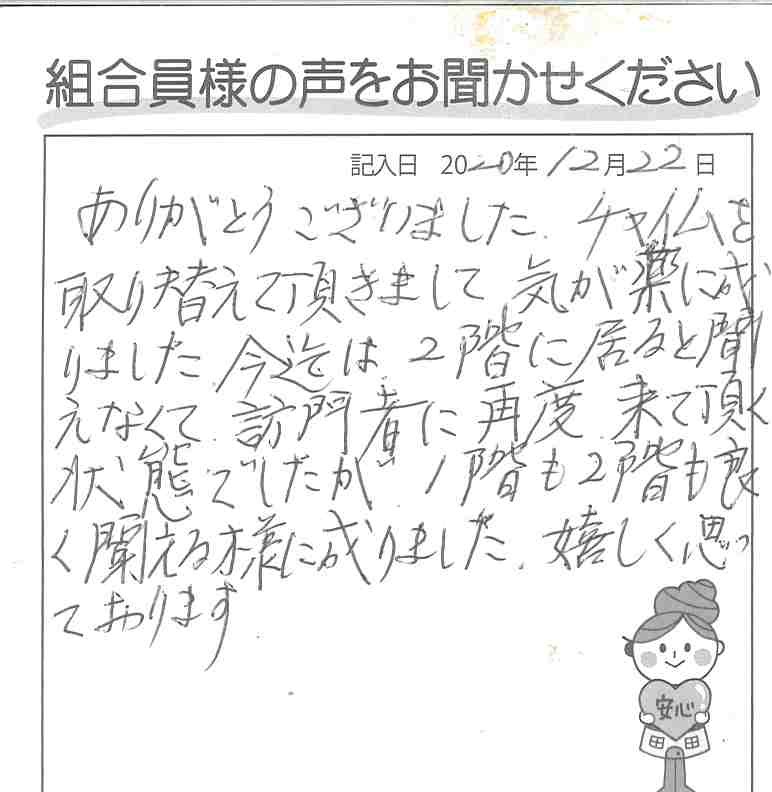 組合員様の声をお聞かせください
記入日 2020年 12月22日
ありがとうございました、チャイムを
取り替えて頂きまして 気が薬に成
りました 今迄は 2階に居ると聞
えなくて 訪門者に 再度 来て頂く
状態でしたが 1階も2階も良
く聞える様に成りました、嬉しく思っ
ております
安心